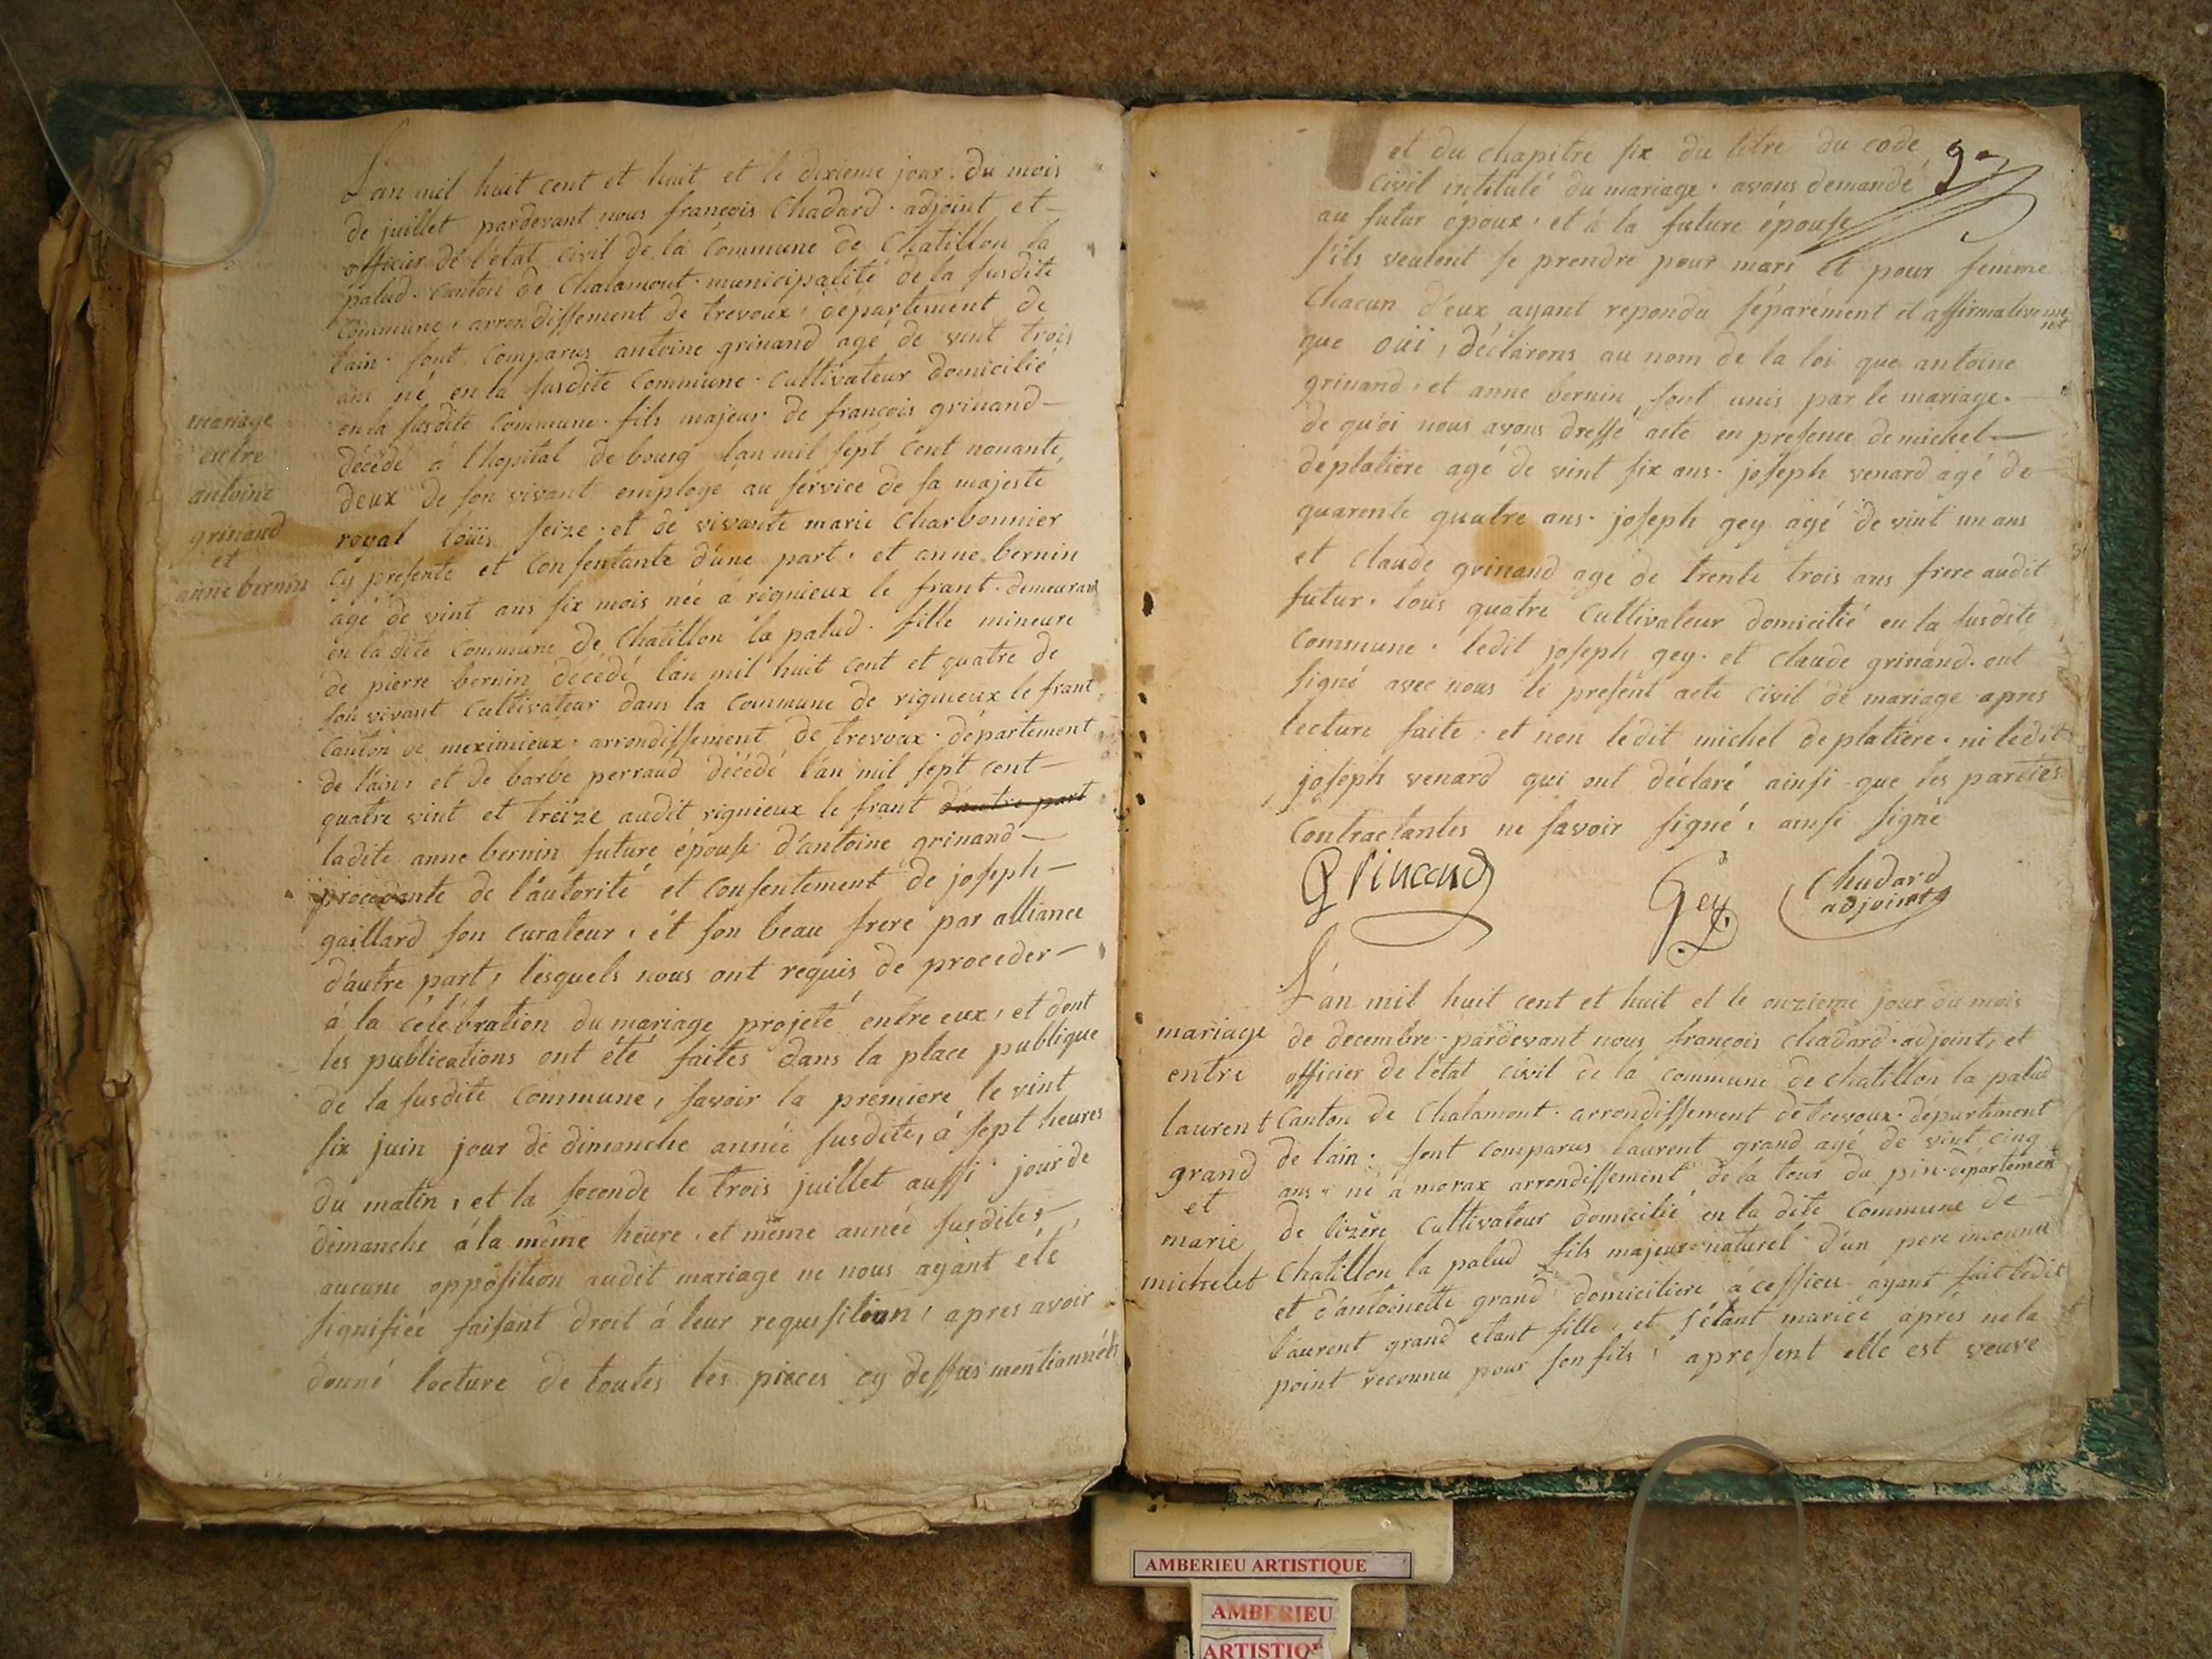 L'an mil huit cent et huit et le dixieme jour. du mois
de juillet pardevant nous françois Chadard. adjoint et
officier de l'état civil de la commune de Chatillon la
palud. canton de Chalamont. municipalité de la susdite
commune, arrondissement de trevoux, département de
l'ain. sont comparus antoine grinand agé de vint trois
ans né en la susdite commune. cultivateur domicilié
en la susdite commune. fils majeur de françois grinand
décédé à l'hopital de bourg l'an mil sept cent nonante
deux de son vivant employé au service de sa majesté
royal loüis seize. et de vivante marie Charbonnier
cy presente et consentante d'une part. et anne bernin
agé de vint ans six mois née à rignieux le frant. demeurant
en la dite commune de Chatillon la palud. fille mineure
de pierre bernin décédé l'an mil huit cent et quatre de
son vivant cultivateur dans la commune de rignieux le frant
canton de meximieux, arrondissement de trevoux. département
de l'ain, et de barbe perraud décédé l'an mil sept cent
quatre vint et treize audit rignieux le frant d'autre part
ladite anne bernin future épouse d'antoine grinand
procedante de l'autorité et consentement de joseph
gaillard son curateur, ét son beau frere par alliance
d'autre part, lesquels nous ont requis de proceder
à la célébration du mariage projeté entre eux, et dont
les publications ont été faites dans la place publique
de la susdite commune, savoir la premiere le vint
six juin jour de dimanche année susdite, à sept heures
du matin, et la seconde le trois juillet aussi jour de
dimanche à la même heure, et même année susdites
aucune opposition audit mariage ne nous ayant été
signifiée faisant droit á leur requesition, apres avoir
donné lecture de toutes les pieces cy dessus mentionnéés
mariage
entre
antoine
grinand
et
anne bernin
9
et du chapitre six du titre du code
civil intitulé du mariage. avons demandé
au futur époux, et à la future épouse
s'ils veulent se prendre pour mari et pour femme
chacun d'eux ayant repondu séparément et affirmativement
que oüi, déclarons au nom de la loi que antoine
grinand, et anne bernin, sont unis par le mariage.
de qu'oi nous avons dressé acte en presence de michel
deplatiere agé de vint six ans. joseph venard agé de
quarente quatre ans. joseph gey agé de vint un ans
et claude grinand agé de trente trois ans frere audit
futur. tous quatre cultivateur domicilié en la susdite
commune. ledit joseph gey. et claude grinand. ont
signé avec nous le present acte civil de mariage apres
lecture faite. et non ledit michel deplatiere. ni ledit
joseph venard qui ont déclaré ainsi que les parties
contractantes ne savoir signé, ainsi signé
Grinand
Gey
Chadard
adjoint
L'an mil huit cent et huit et le onzieme jour du mois
de decembre. pardevant nous françois chadard. adjoint, et
officier de l'état civil de la commune de chatillon la palud
canton de Chalamont. arrondissement de trevoux. département
de l'ain. sont comparus laurent grand agé de vint cinq
ans, né à morax arrondissement de la tour du pin département
de lizère cultivateur domicilié en la dite commune de
chatillon la palud fils majeur naturel d'un pere inconnu
et d'antoinette grand domiciliere à cessieu ayant fait ledit
laurent grand etant fille, et s'étant mariée aprés ne la
point reconnu pour son fils, apresent elle est veuve
mariage
entre
laurent
grand
et
marie
michelet
AMBERIEU ARTISTIQUE
AMBERIEU
ARTISTIQU